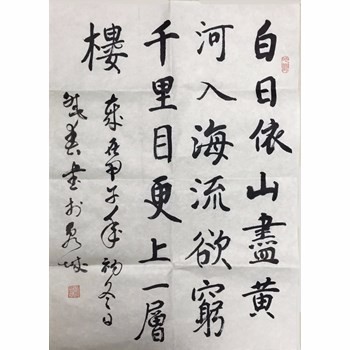 白日依山盡黄
河入海流欲窮
千里目更上一層
樓
歲在甲子年初冬日
書於